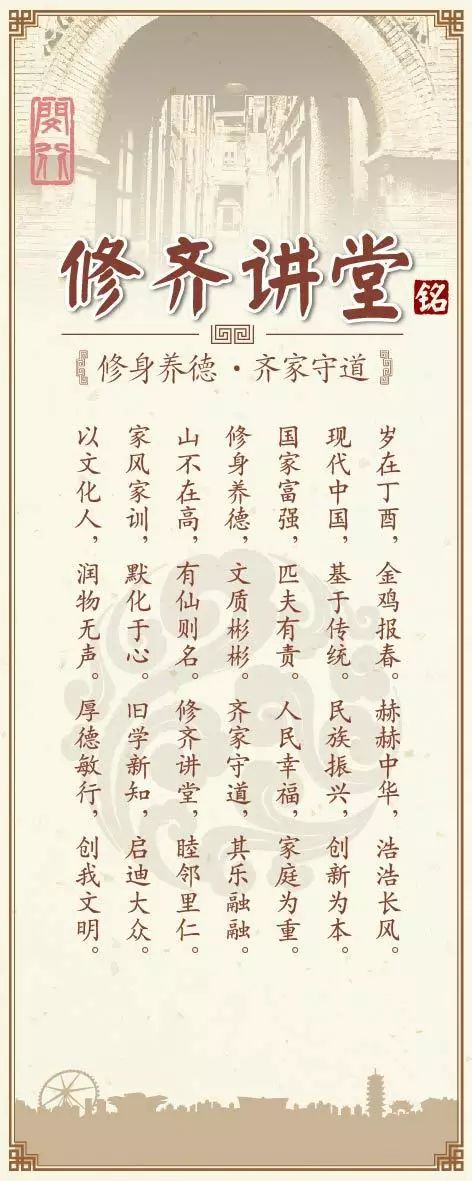 闵行
修齐讲堂
铭
修身养德·齐家守道
岁在丁酉，金鸡报春。赫赫中华，浩浩长风。
现代中国，基于传统。民族振兴，创新为本。
国家富强，匹夫有责。人民幸福，家庭为重。
修身养德，文质彬彬。齐家守道，其乐融融。
山不在高，有仙则名。修齐讲堂，睦邻里仁。
家风家训，默化于心。旧学新知，启迪大众。
以文化人，润物无声。厚德敏行，创我文明。